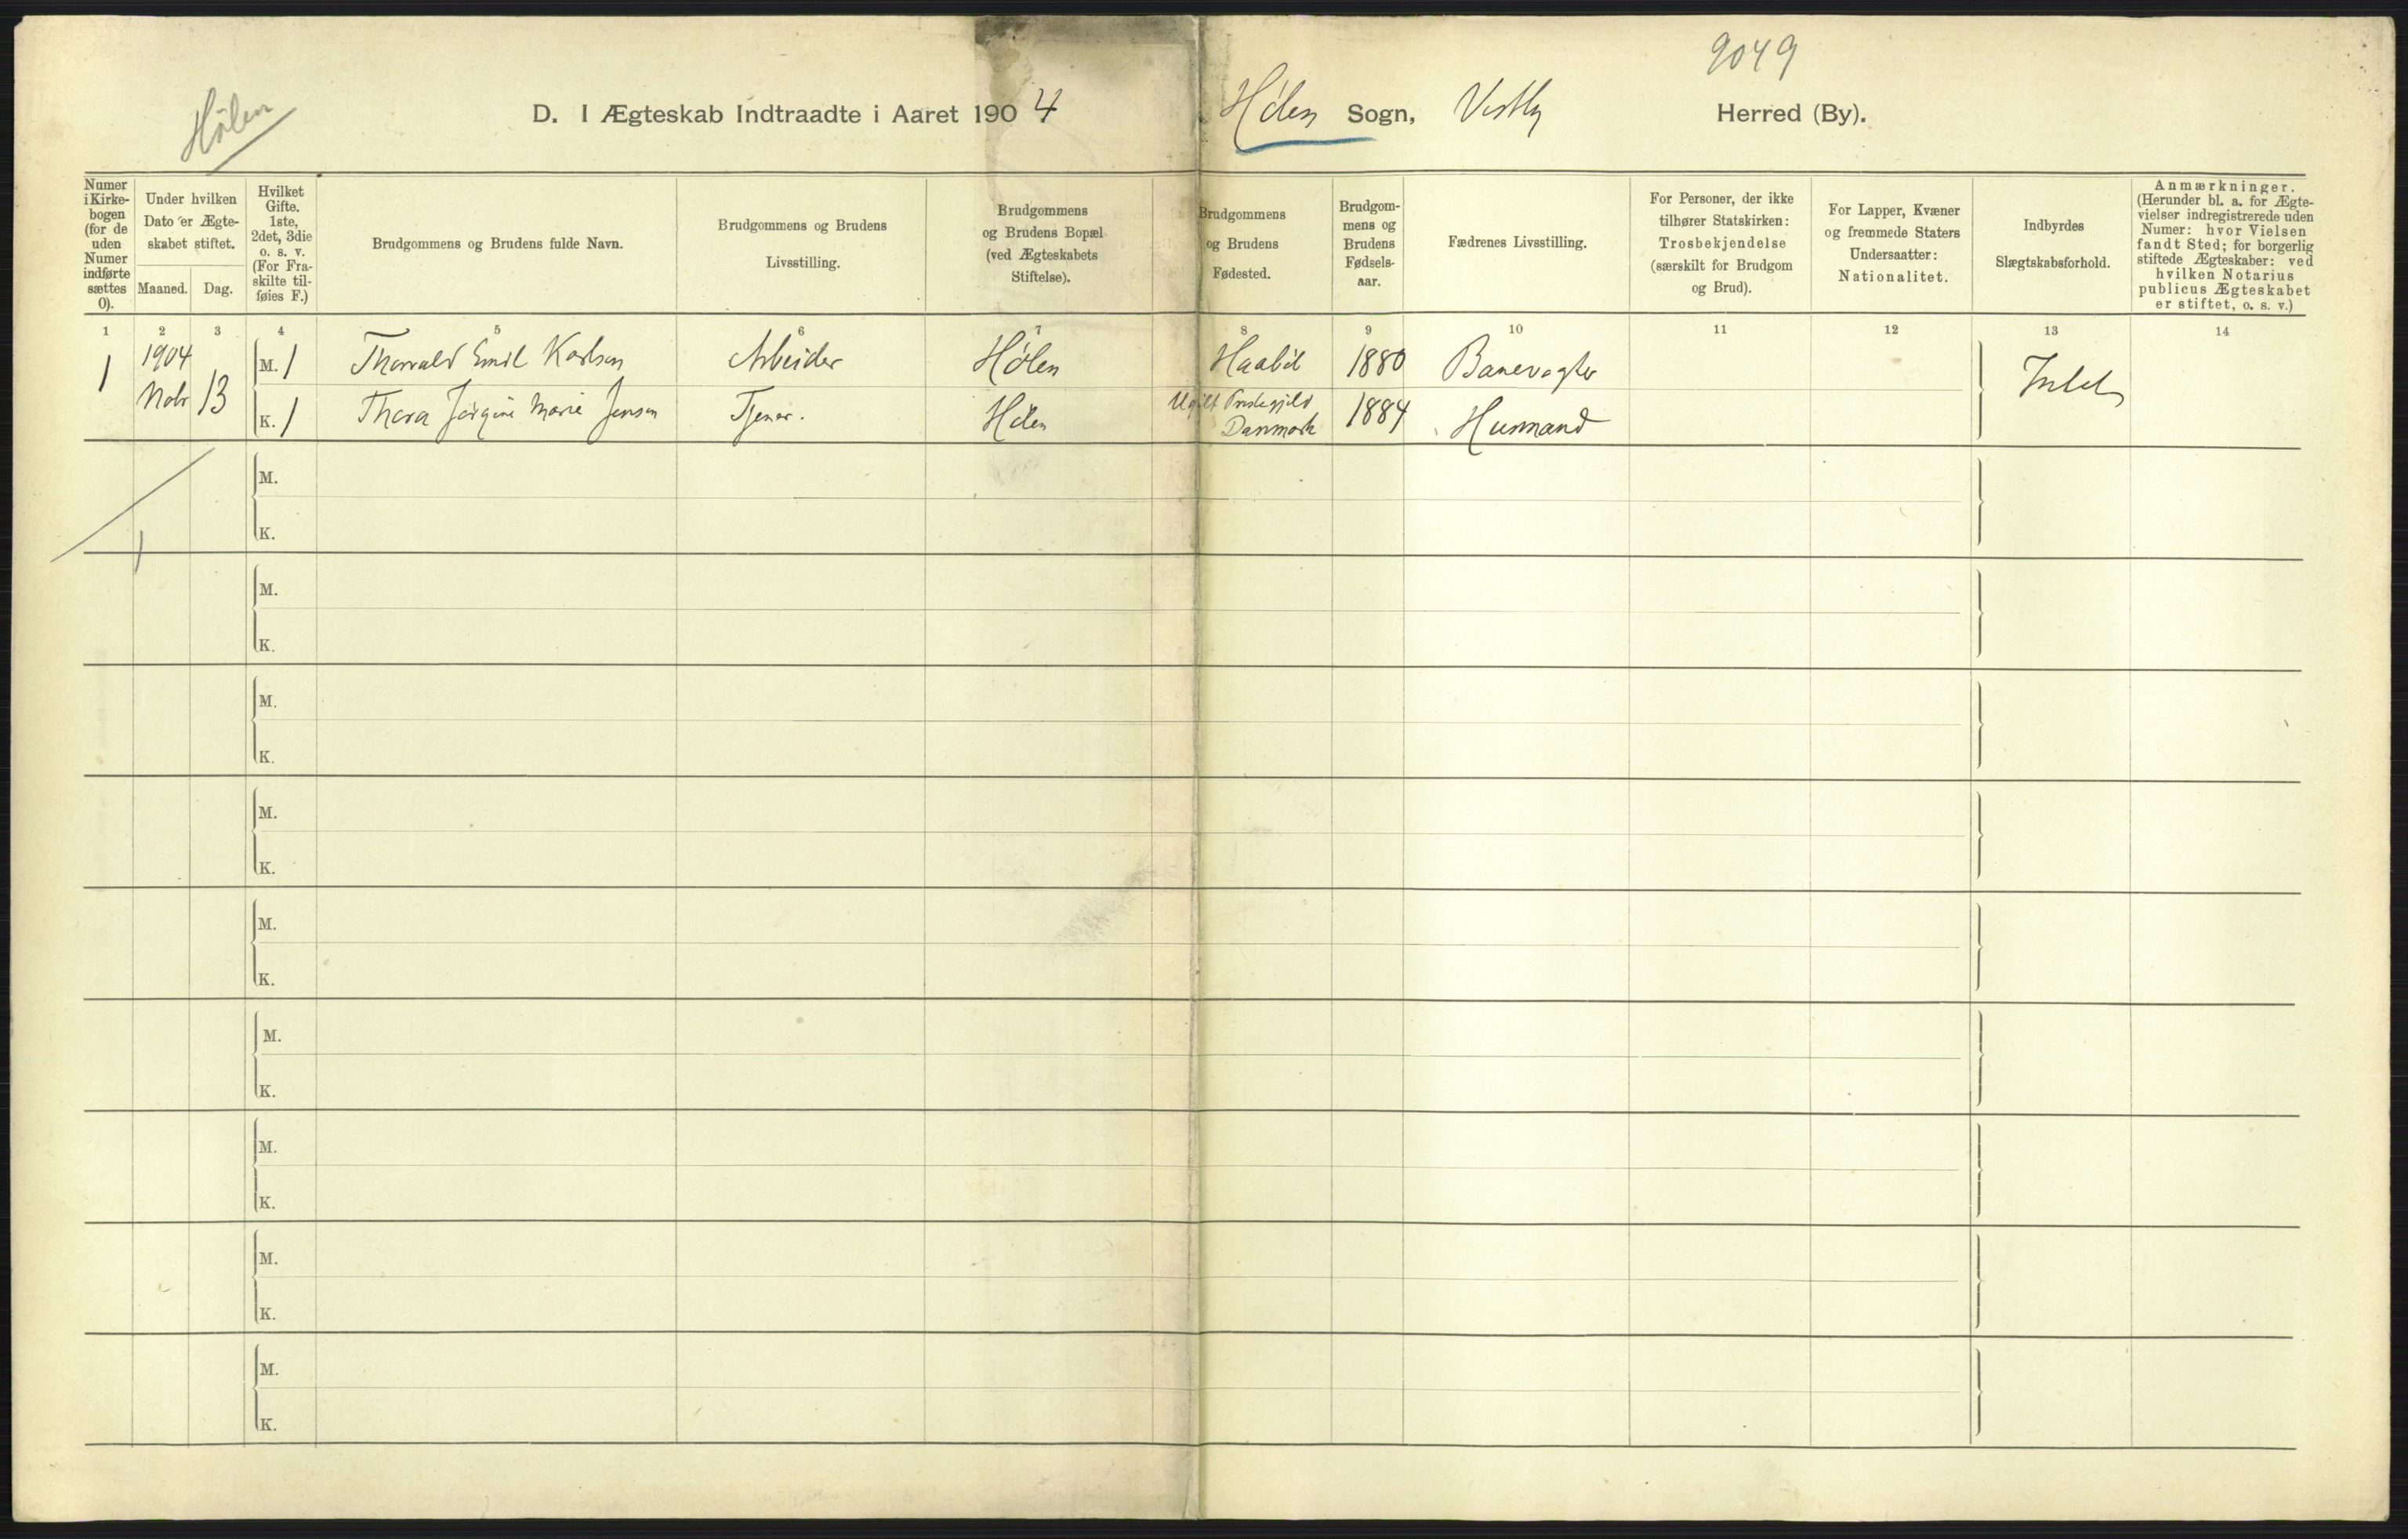 9049
Hölen
D. I Ægteskab Indtraadte i Aaret 1904 Hölen Sogn, Vestby Herred (By).
Numer i Kirke- bogen (for de uden Numer indførte sættes 0).
Under hvilken Dato er Ægte- skabet stiftet.
Maaned. Dag.
Hvilket Gifte. 1ste, 2det, 3die o. s. v. (For Fra- skilte til- føies F.)
Brudgommens og Brudens fulde Navn.
Brudgommens og Brudens Livsstilling.
Brudgommens og Brudens Bopæl (ved Ægteskabets Stiftelse).
Brudgommens og Brudens Fødested.
Brudgom- mens og Brudens Fødsels- aar.
Fædrenes Livsstilling.
For Personer, der ikke tilhører Statskirken: Trosbekjendelse (særskilt for Brudgom og Brud).
For Lapper, Kvæner og fremmede Staters Undersaatter: Nationalitet.
Indbyrdes Slægtskabsforhold.
Anmærkninger. (Herunder bl. a. for Ægte- vielser indregistrerede uden Numer: hvor Vielsen fandt Sted; for borgerlig stiftede Ægteskaber: ved hvilken Notarius publicus Ægteskabet er stiftet, o. s. v.)
1 2 3 4 5 6 7 8 9 10 11 12 13 14
1 1904 Novbr 13 M. 1 Thorvald Emil Karlsen Arbeider Hölen Haabøl 1880 Banevogter Intet
K. 1 Thora Jörgine Marie Jensen Tjener. Hölen Ugilt Prestegjeld Danmark 1884 Husmand
M.
K.
M.
K.
M.
K.
M.
K.
M.
K.
M.
K.
M.
K.
M.
K.
M.
K.